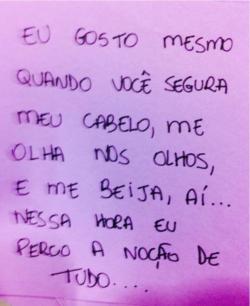 EU GOSTO MESMO
QUANDO VOCÊ SEGURA
MEU CABELO, ME
OLHA NOS OLHOS,
E ME BEIJA, AÍ...
NESSA HORA EU
PERCO A NOÇÃO DE
TUDO....